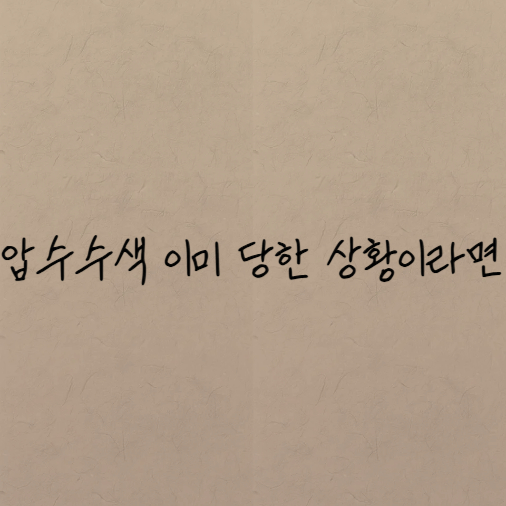 압수수색 이미 당한 상황이라면